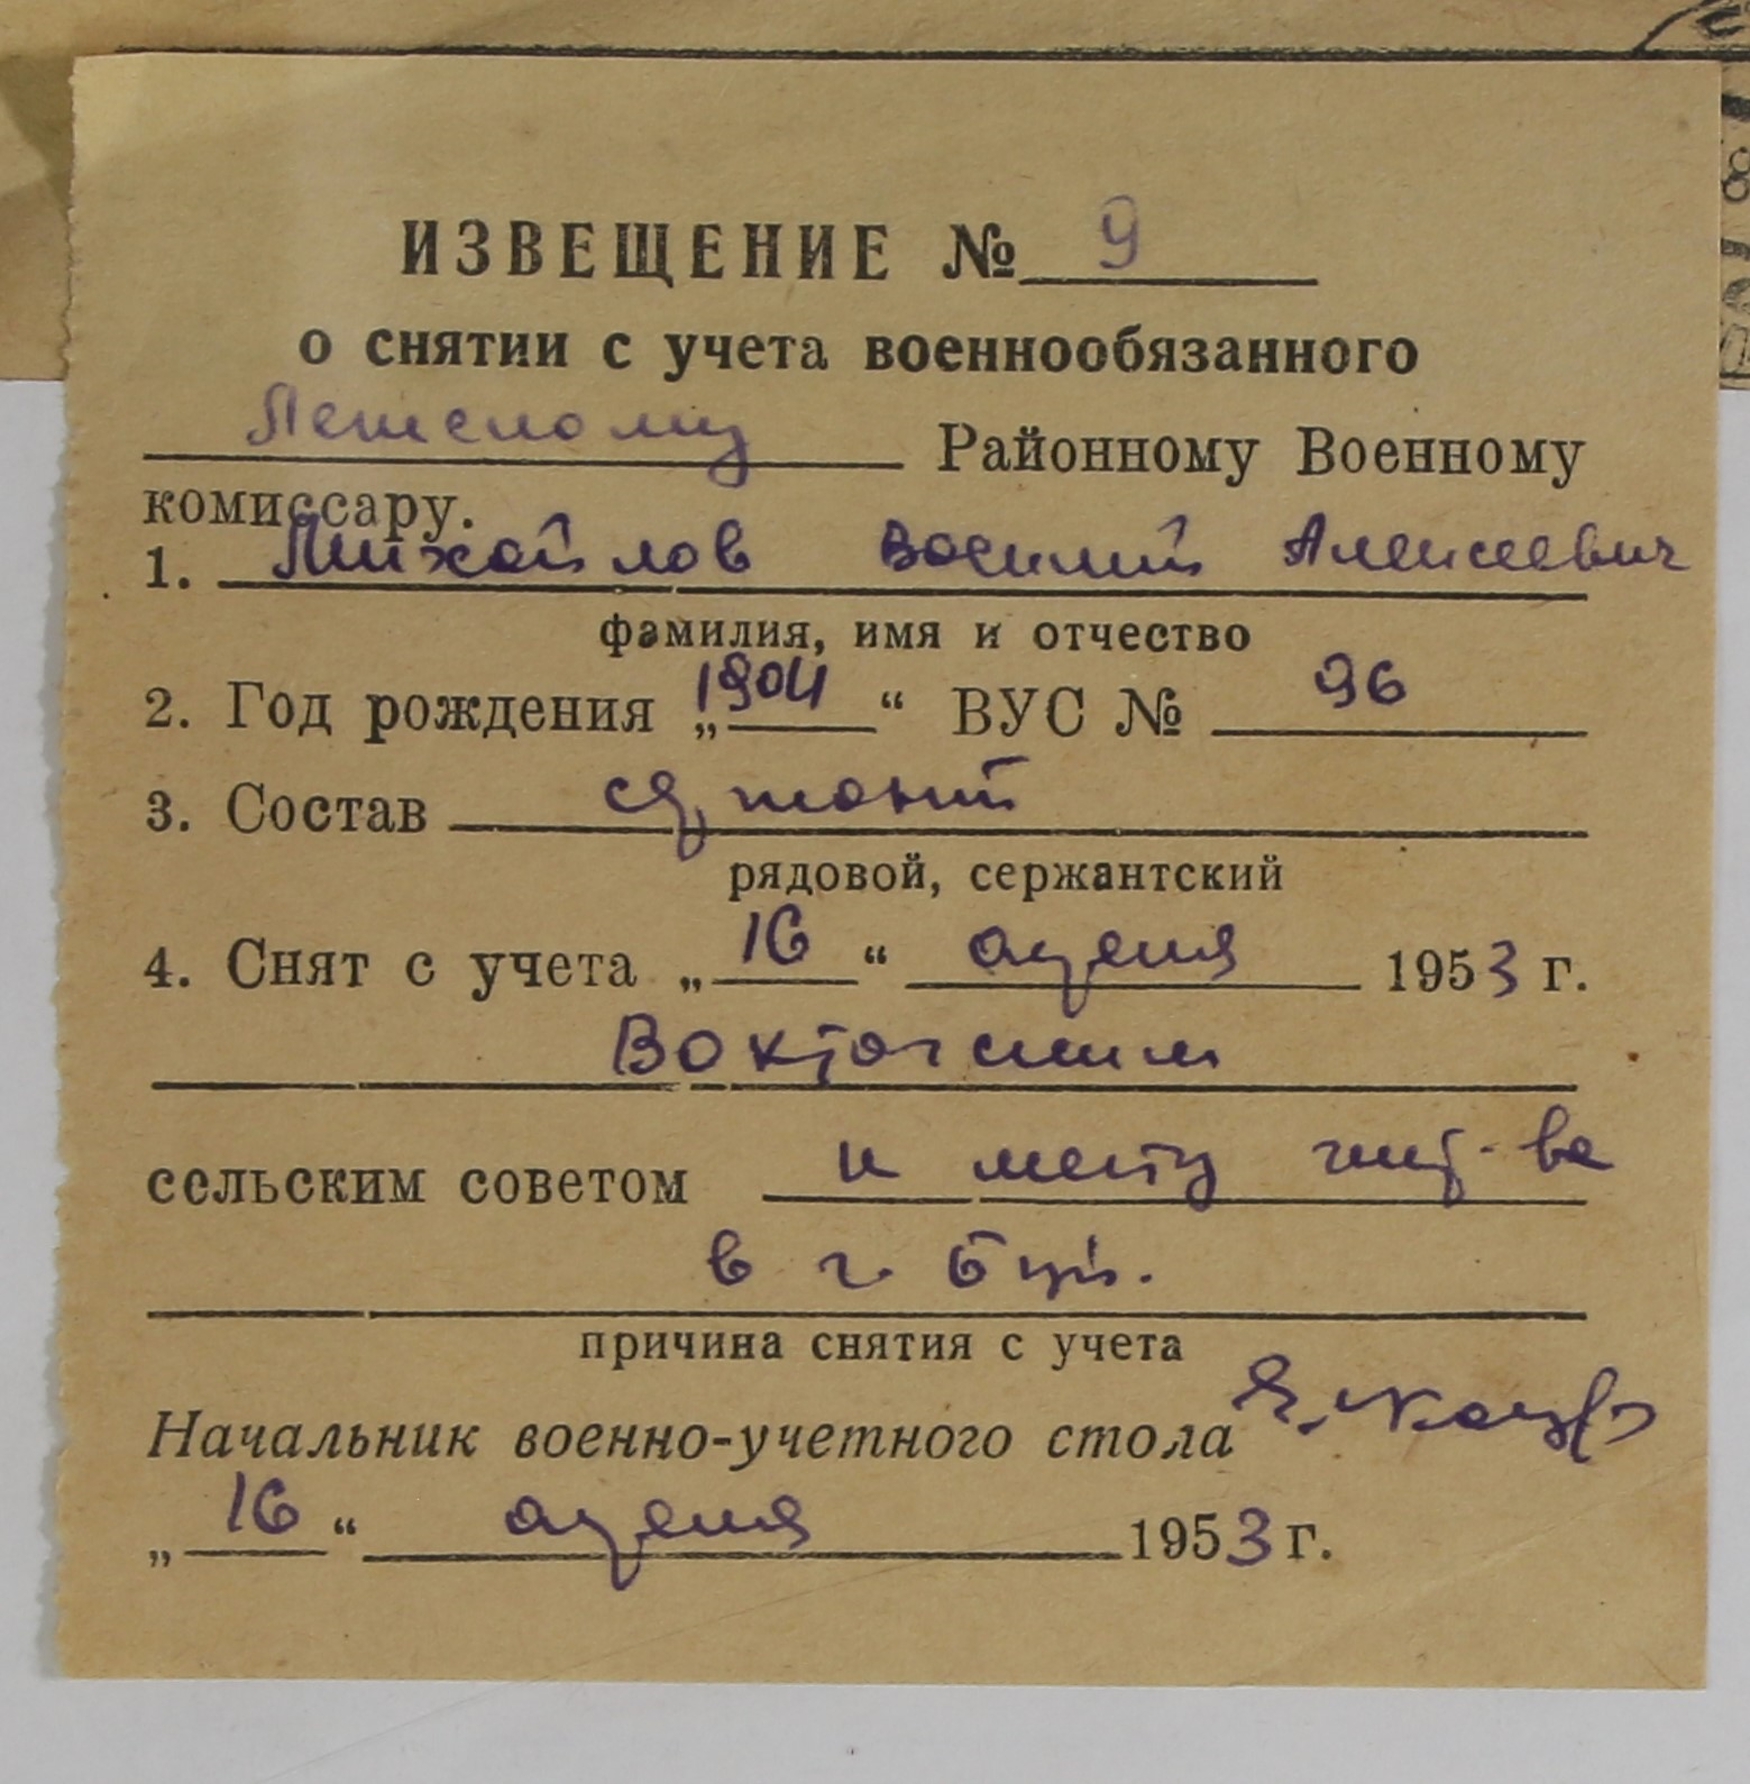 ИЗВЕЩЕНИЕ № 9
о снятии с учета военнообязанного
Районному Военному
комиссару.
1. Михайлов Василий Алексеевич
фамилия, имя и отчество
2. Год рождения „1904“ ВУС № 96
3. Состав сержант
рядовой, сержантский
4. Снят с учета „16“ апреля 1953 г.
сельским советом к месту жит-ва
в г.
причина снятия с учета
Начальник военно-учетного стола
„16“ апреля 1953 г.